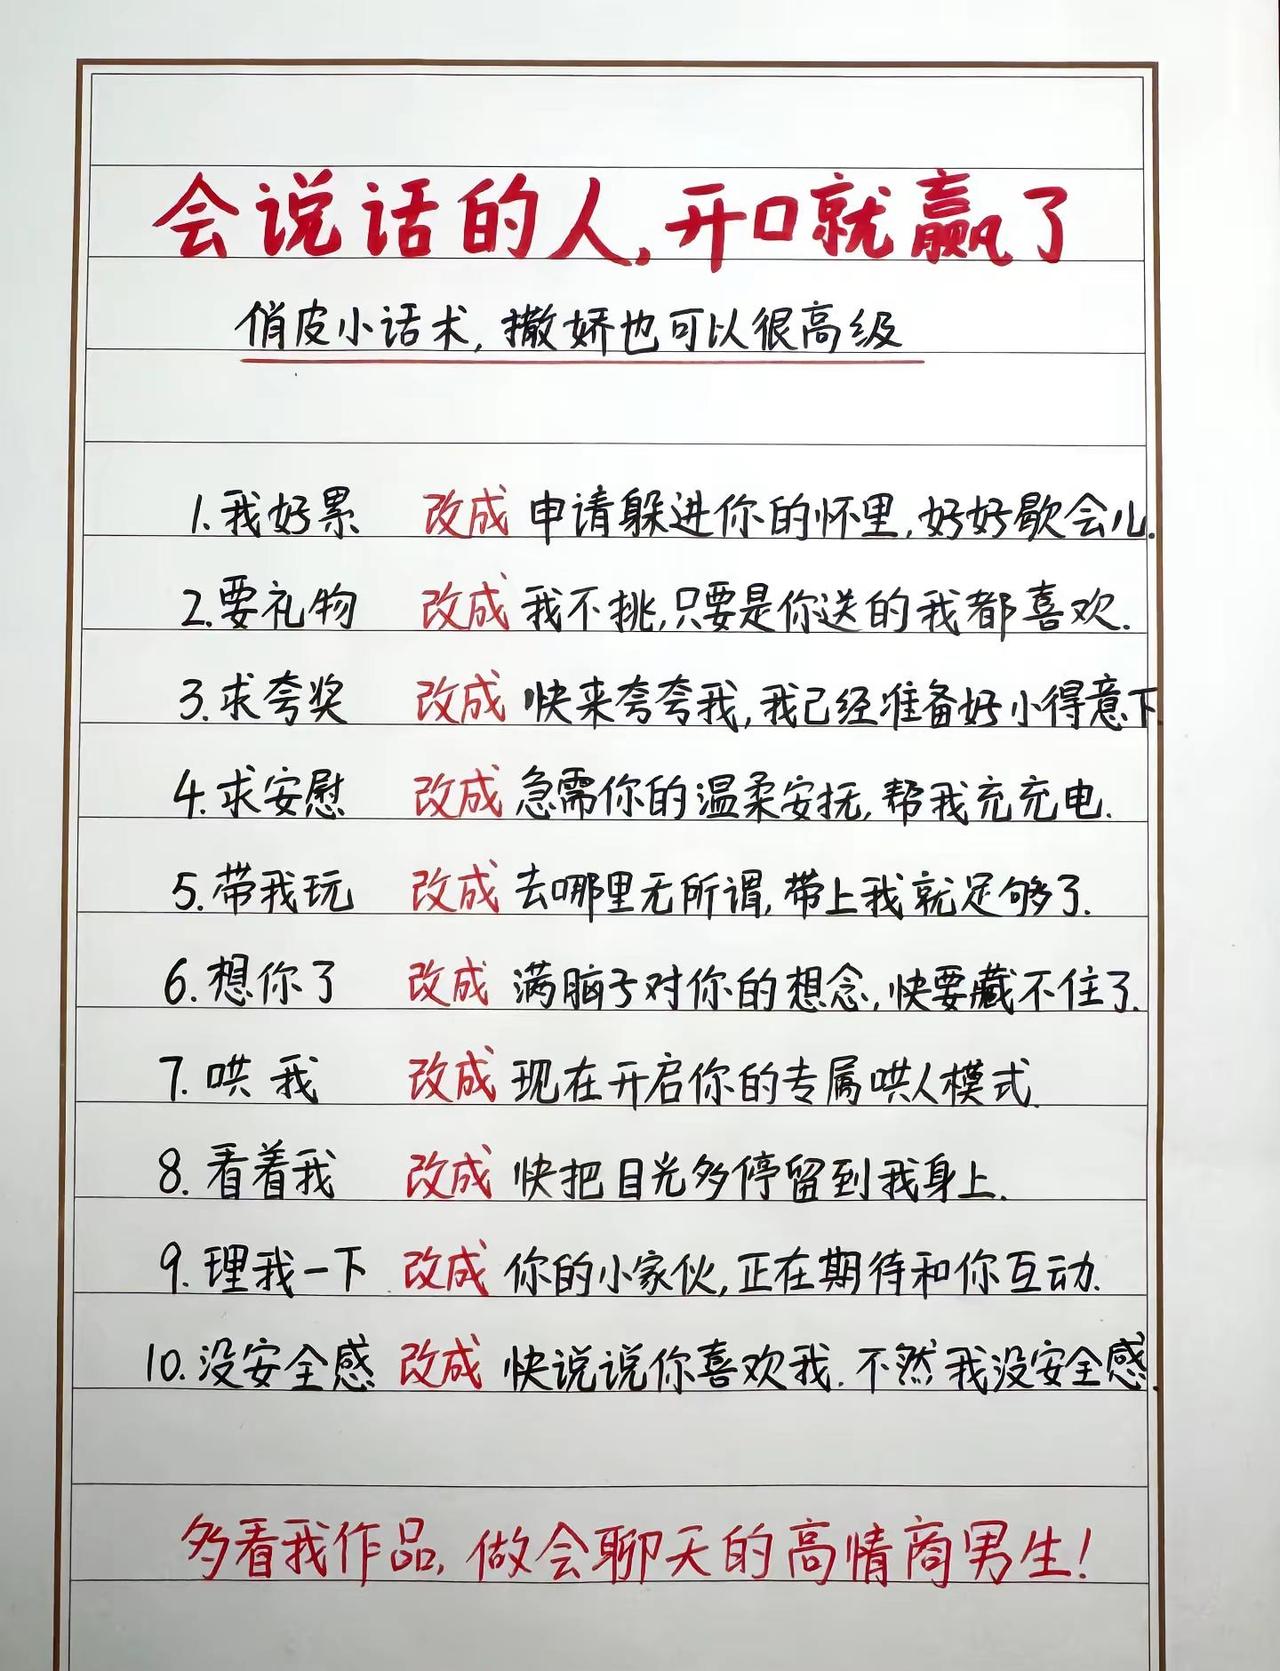 会说话的人,开口就赢了
俏皮小话术,撒娇也可以很高级
1.我好累 改成 申请躲进你的怀里,好好歇会儿.
2.要礼物 改成 我不挑,只要是你送的我都喜欢.
3.求夸奖 改成 快来夸夸我,我已经准备好小得意下
4.求安慰 改成 急需你的温柔安抚,帮我充充电.
5.带我玩 改成 去哪里无所谓,带上我就足够了.
6.想你了 改成 满脑子对你的想念,快要藏不住了.
7.哄我 改成 现在开启你的专属哄人模式.
8.看着我 改成 快把目光多停留到我身上.
9.理我一下 改成 你的小家伙,正在期待和你互动.
10.没安全感 改成 快说说你喜欢我.不然我没安全感.
多看我作品,做会聊天的高情商男生!